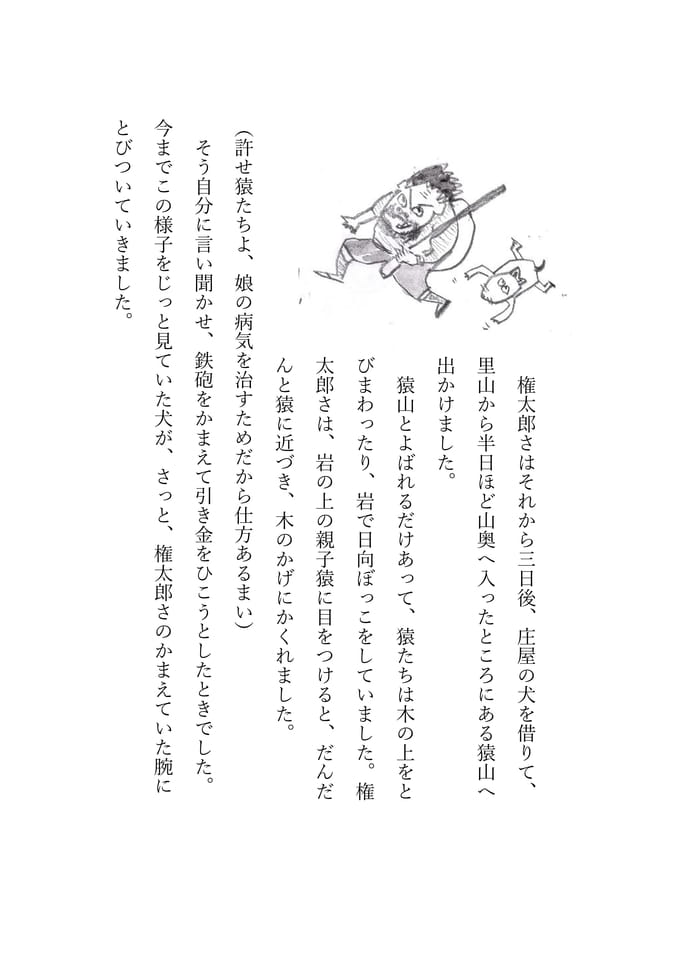 権太郎さはそれから三日後、庄屋の犬を借りて、
里山から半日ほど山奥へ入ったところにある猿山へ
出かけました。
猿山とよばれるだけあって、猿たちは木の上をと
びまわったり、岩で日向ぼっこをしていました。権
太郎さは、岩の上の親子猿に目をつけると、だんだ
んと猿に近づき、木のかげにかくれました。
（許せ猿たちよ、娘の病気を治すためだから仕方あるまい）
そう自分に言い聞かせ、鉄砲をかまえて引き金をひこうとしたときでした。
今までこの様子をじっと見ていた犬が、さっと、権太郎さのかまえていた腕に
とびついていきました。